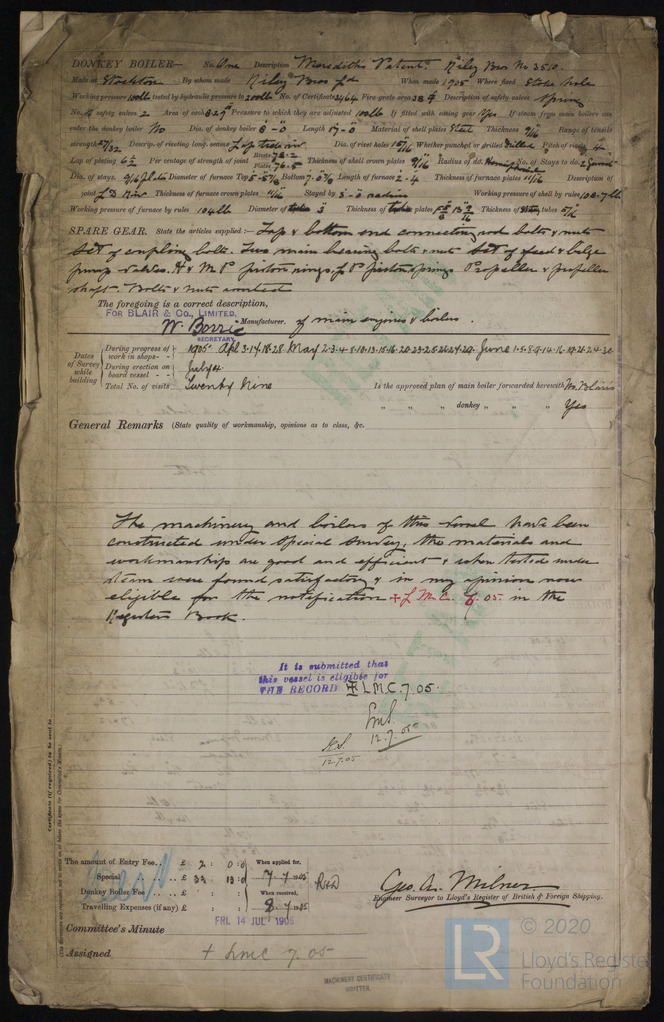 DONKEY BOILER— No. One Description Merediths Patent. Riley Bros No 3510.
Made at Stockton By whom made Riley Bros Ld When made 1905 Where fixed Stoke hole
Working pressure 100lb tested by hydraulic pressure to 200lb No. of Certificate 3464 Fire grate area 38 Description of safety valves Spring
No. of safety valves 2 Area of each Pressure to which they are adjusted 100lb If fitted with easing gear Yes If steam from main boilers can
enter the donkey boiler No Dia. of donkey boiler 8-0 Length 17-0 Material of shell plates Steel Thickness 9/16 Range of tensile
strength 27/32 Descrip. of riveting long. seams Lap treb riv Dia. of rivet holes 15/16 Whether punched or drilled Drilled Pitch of rivets 4
Lap of plating 6½ Per centage of strength of joint Rivets 78.2 Plates 76.5 Thickness of shell crown plates 9/16 Radius of do. Hemispherical No. of Stays to do. 2
Dia. of stays. Diameter of furnace Top Bottom Length of furnace 2-4 Thickness of furnace plates 11/16 Description of
joint L D Riv Thickness of furnace crown plates 11/16 Stayed by 3-0 radius Working pressure of shell by rules 108.7 lb
Working pressure of furnace by rules 104 lb Diameter of 3 Thickness of plates Thickness of tubes 5/16
SPARE GEAR. State the articles supplied:— Top & bottom end connecting rod bolts & nuts
Set of coupling bolts. Two main bearing bolts & nuts Set of feed & bilge
pump valves. H & M P piston rings, L P piston springs Propeller & propeller
shaft. Bolts & nuts assorted
The foregoing is a correct description,
FOR BLAIR & Co., LIMITED.
W. Borrie Manufacturer. of main engines & boilers.
SECRETARY.
Dates of Survey while building
During progress of work in shops - - 1905 Apl 3.14.18.28 May 2.3.4.8.10.13.15.16.20.23.25.26.27.29. June 1.5.8.9.14.16.19.21.24.30
During erection on board vessel - - July 4.
Total No. of visits Twenty Nine Is the approved plan of main boiler forwarded herewith
" " " donkey " " " Yes
General Remarks (State quality of workmanship, opinions as to class, &c.
The machinery and boilers of this vessel have been
constructed under special survey, the materials and
workmanship are good and efficient & when tested under
steam were found satisfactory & in my opinion now
eligible for the notification + L.M.C. 7.05 in the
Register Book.
It is submitted that
this vessel is eligible for
THE RECORD + L.M.C. 7.05.
12.7.05
12.7.05
Certificate (if required) to be sent to
The amount of Entry Fee.. £ 2 : 0 : 0 When applied for,
Special £ 33 : 13 : 0 7.7.1905
Donkey Boiler Fee £ : : When received,
Travelling Expenses (if any) £ : : 8.7.1905
Geo. A. Milner
Engineer Surveyor to Lloyd's Register of British & Foreign Shipping.
Committee's Minute FRI. 14 JUL 1905
Assigned + LMC 7.05
MACHINERY CERTIFICATE
WRITTEN.
LR
© 2020
Lloyd's Register
Foundation